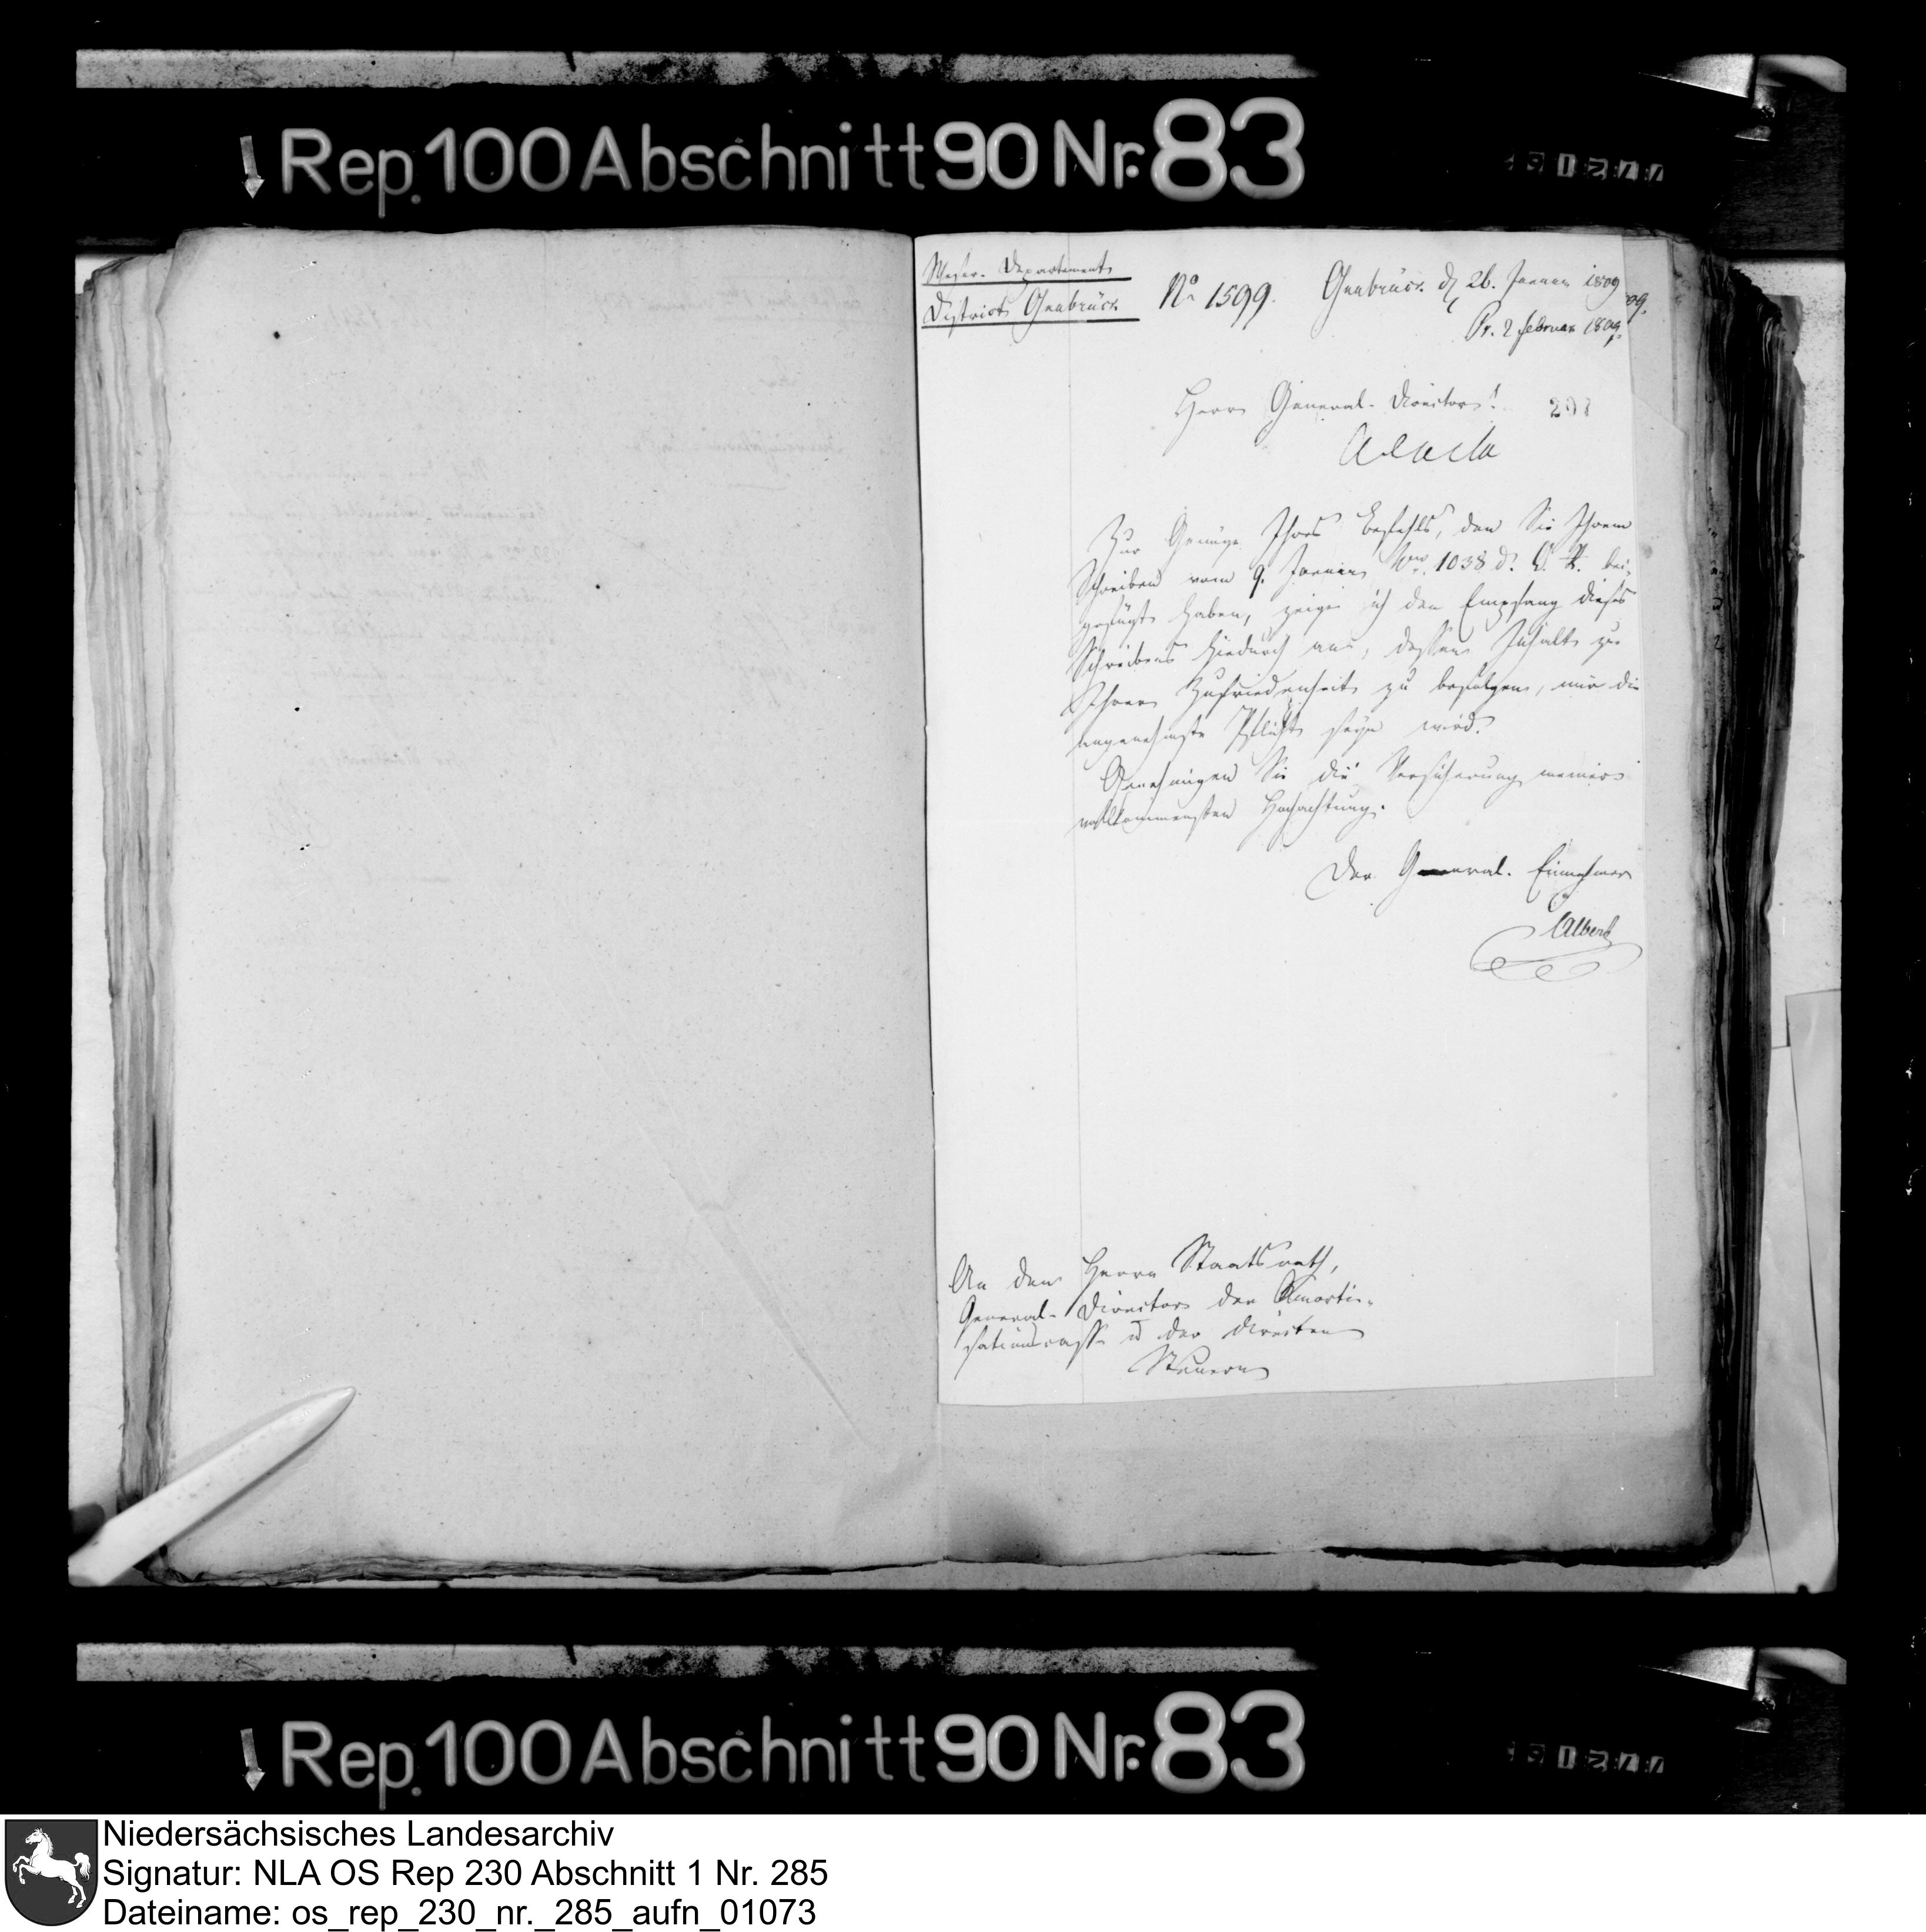 Rep. 100 Abschnitt 90 Nr. 83
Weser-Departement
District Osnabrück
No 1599.
Osnabrück d. 26. Januar 1809
Pr. 2 Februar 1809.
Herr General-Director!
203
Ad acta
Zur Genüge Ihres Befehls, den Sie Ihrem
Schreiben vom 9. Januar Nro. 1038 d. C. R. bei-
gefügt haben, zeige ich den Empfang dieses
Schreibens hiedurch an, dessen Inhalt zu
Ihrer Zufriedenheit zu befolgen, mir die
angenehmste Pflicht seyn wird.
Genehmigen Sie die Versicherung meiner
vollkommensten Hochachtung.
Der General-Einnehmer
Albert
An den Herrn Staatsrath,
General-Director der Amorti-
sationscasse u der directen
Steuern
Rep. 100 Abschnitt 90 Nr. 83
Niedersächsisches Landesarchiv
Signatur: NLA OS Rep 230 Abschnitt 1 Nr. 285
Dateiname: os_rep_230_nr._285_aufn_01073